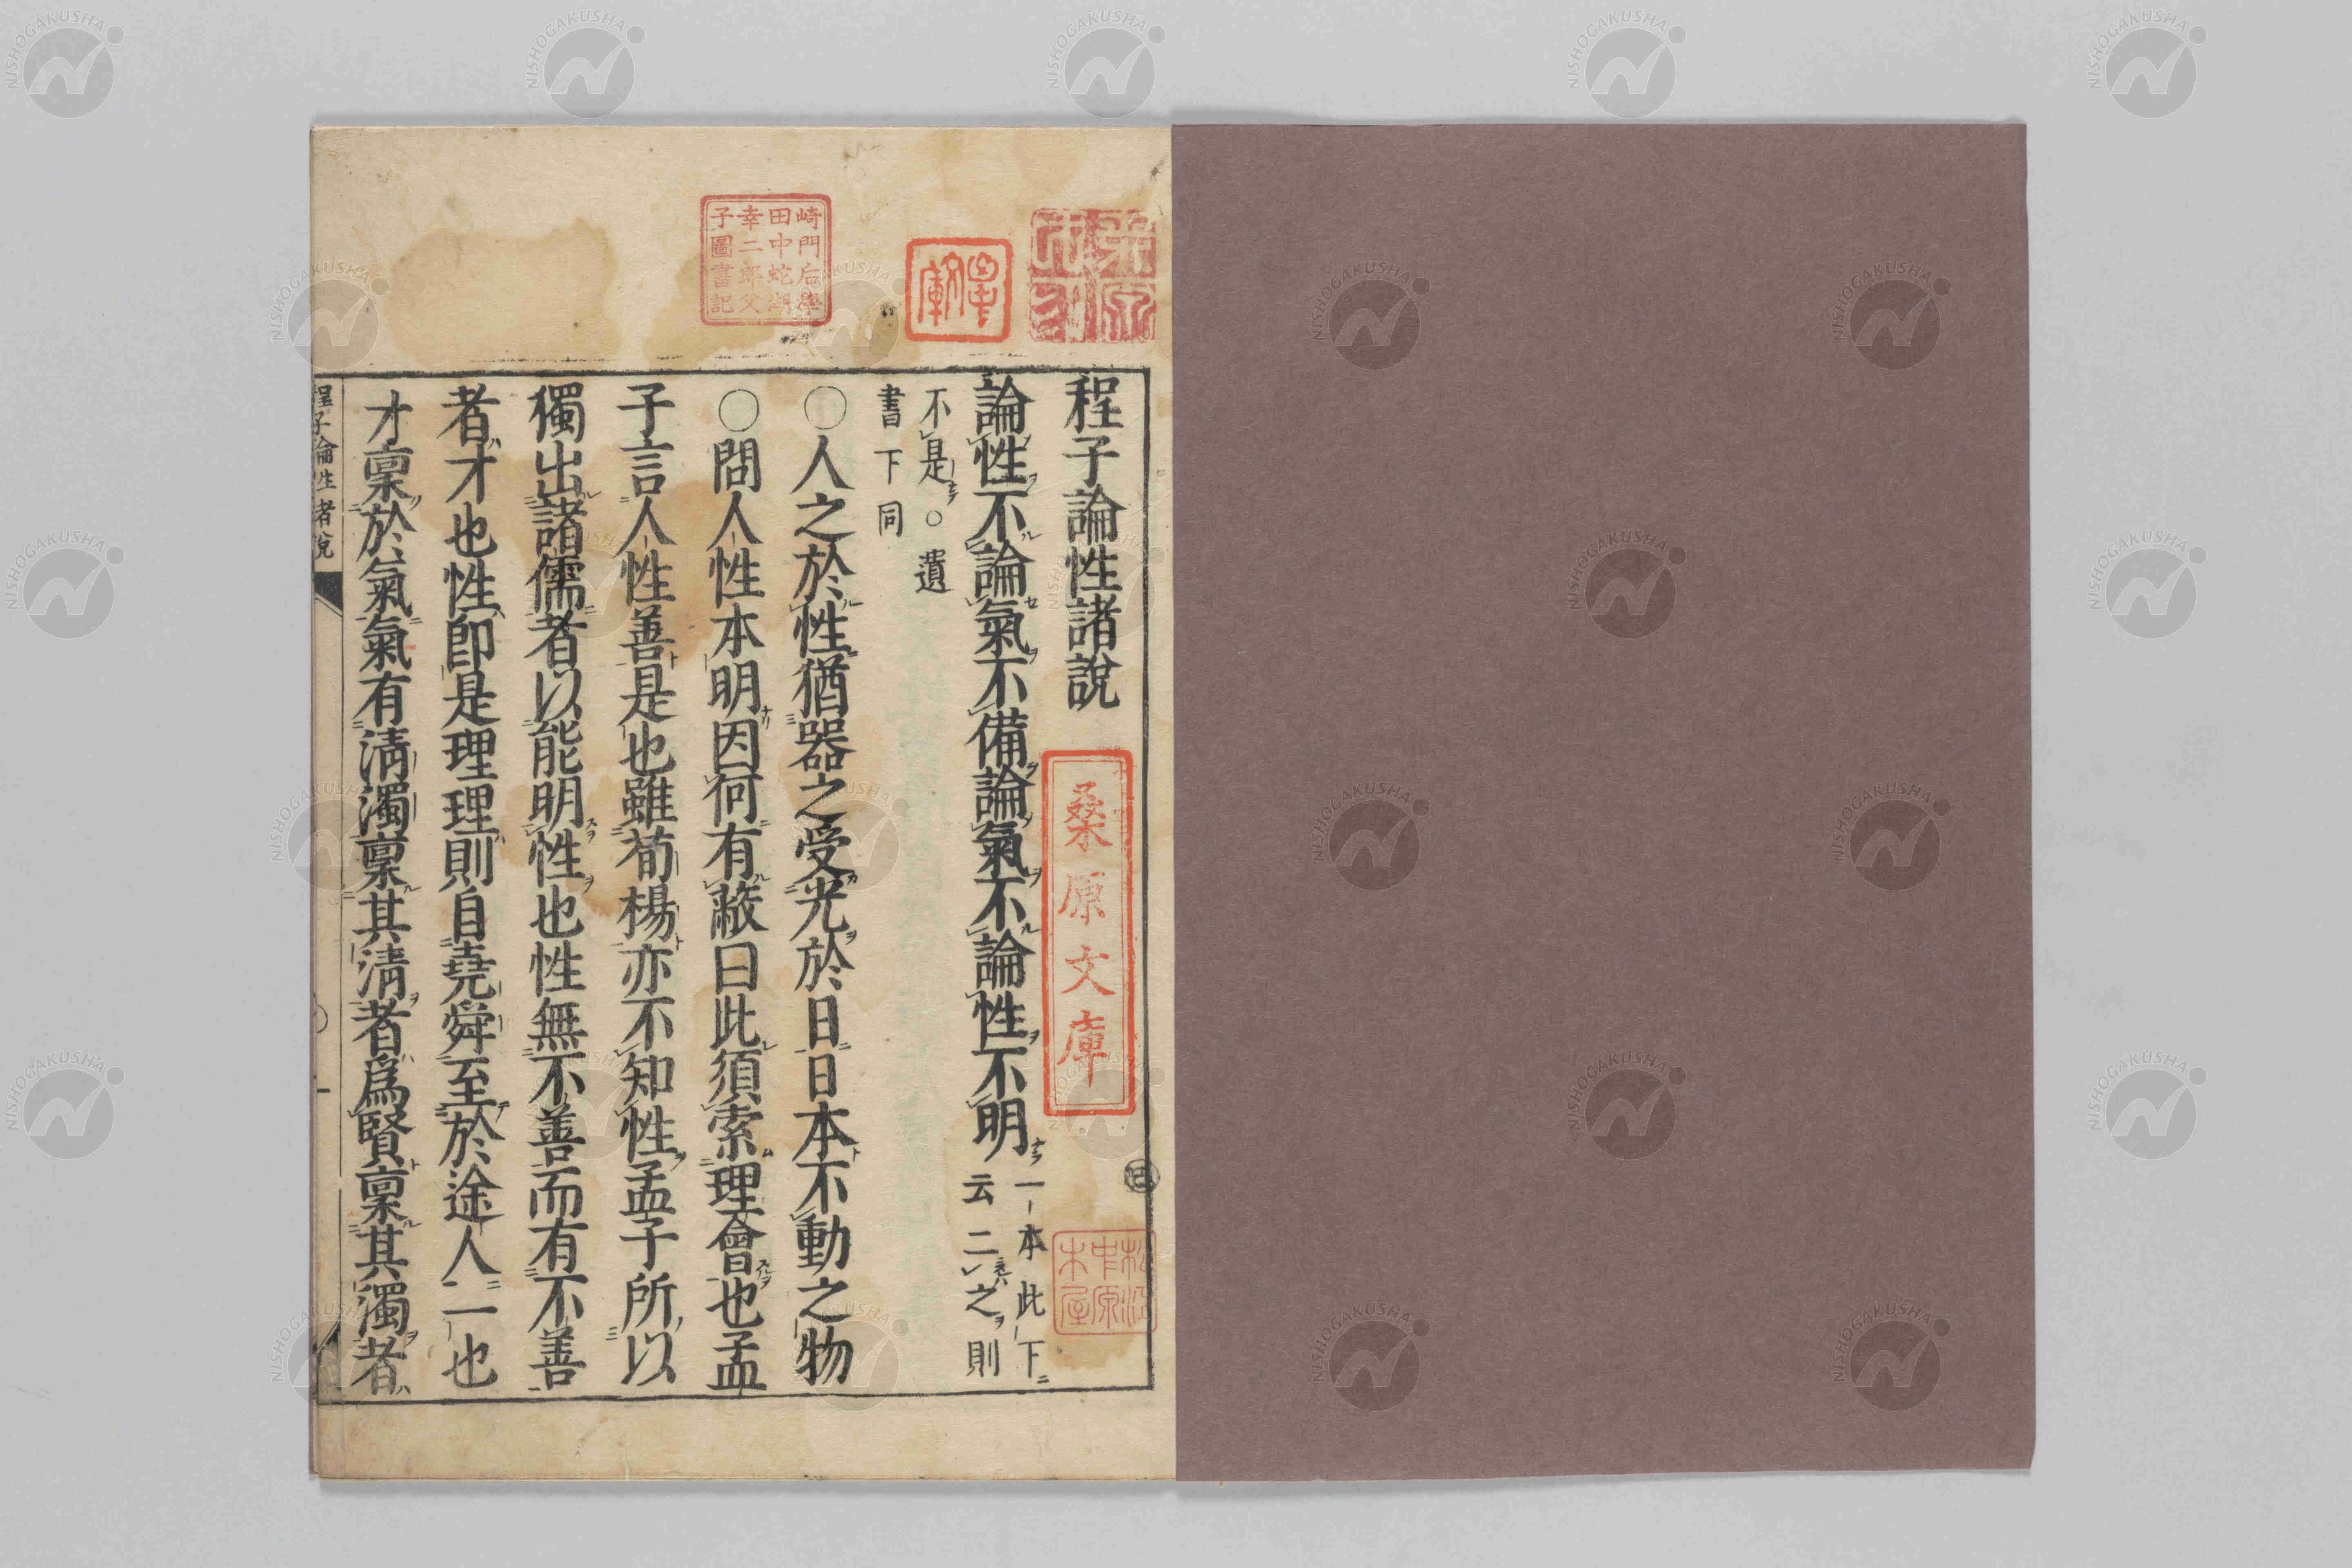 程子論性諸說
論性不論氣不備論氣不論性不明一本此下云二之則
不是○遺書下同
○人之於性猶器之受光於日日本不動之物
○問人性本明因何有蔽曰此須索理會也孟
子言人性善是也雖荀楊亦不知性孟子所以
獨出諸儒者以能明性也性無不善而有不善
者才也性即是理理則自堯舜至於途人一也
才稟於氣氣有淸濁稟其淸者爲賢稟其濁者
程子論性者說
桑原文庫
崎門后學
田中蛇湖
幸二郎父
子圖書記
NISHOGAKUSHA